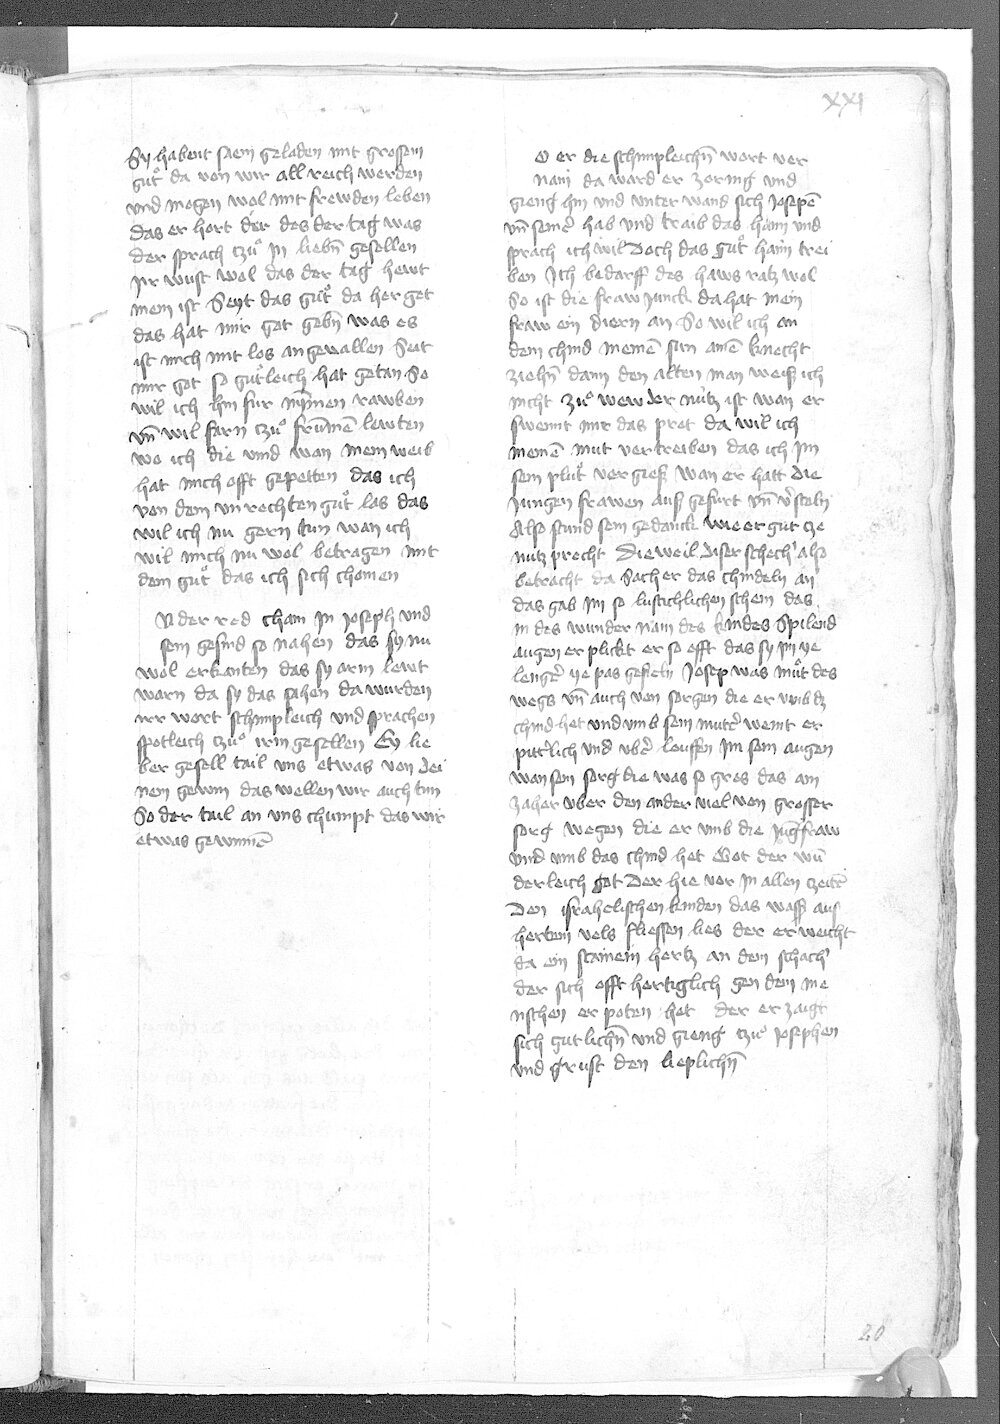 XXI
Sy habent saem geladen mit grossem
guͦt da von wir all reich werden
vnd mogen wol mit frewden leben
das er hort der des der tag was
der sprach tzuͦ in liebn̄ gesellen
Jr wust wol das der tag hewt
mein ist Seyt das guͦt da her get
das hat mir got gebn̄ was es
ist mich mit los an gevallen Seit
mir got so guͦtleich hat getan So
wil ich hin fur nyͫmen rawben
vn̄ wil farn tzuͦ frūmē lewten
wo ich die vind wan mein weib
hat mich offt gepetten das ich
von dem vnrechten guͦt las das
wil ich nu gern tun wan ich
wil mich nu wol betragen mit
dem guͦt das ich sich chomen
N der red cham in joseph vnd
sein gesind so nahen das sy nu
wol erkanten das sy arm lewt
warn da sy das sahen da wurden
irr wort schimpleich vnd sprachen
spotleich tzuͦ irm gesellen Ey lie
ber gesell tail vns etwas von dei
nem gewin das wellen wir auch tun
So der tail an vns chumpt das wir
etwas gewinnē
O er die schimpleichn̄ wort ver
nam da ward er zornig vnd
gieng hin vnd vnter wand sich Josepē
vn̄ seiner hab vnd traib das haim vnd
sprach ich wil Doch das guͦt haim trei
ben Jch bedarff des haws ratz wol
So ist die fraw junck da hat mein
fraw ein diern an So wil ich an
dem chind meinē sun ainē knecht
ziehn̄ dann den alten man weiß ich
nicht zuͦ wew der nutz ist wan er
swennt mir das prot da wil ich
meinē mut vertreiben das ich im
sein pluͦt vergieß Wan er hatt die
jungen frawen auß gefurt vn̄ vˀstoln
Also stund sein gedanck wie er gut ze
nutz precht Die weil diser schechˀ also
betracht da Sach er das chindeln an
das gab im so lustichlichen schein das
in des wunder nam des kindes Spilend
augen er plickt er so offt das sy im ye
lengˀ ye pas gefieln Josep was muͦt des
wegs vn̄ auch von sorgen die er vmb dz
chind het vnd vmb sein mutˀ weint er
pittˀlich vnd vbˀ louffen im sein augen
wan sein sorg die was so gros das am
zaher vber den ander viel von grosser
sorg wegen die er vmb die jūgfraw
vnd vmb das chind het Got der wū
derleich got Der hie vor in allen czeitˀ
Den israhelischen kinden das wassˀ aus
hertem vels fliessen lies der erweicht
da ein stainein hertz an dem schachˀ
der sich offt hertiglich gen den me
nschen erpoten het der erzaigt
sich gutlichn̄ vnd gieng tzuͦ josephen
vnd grust den lieplichn̄
20